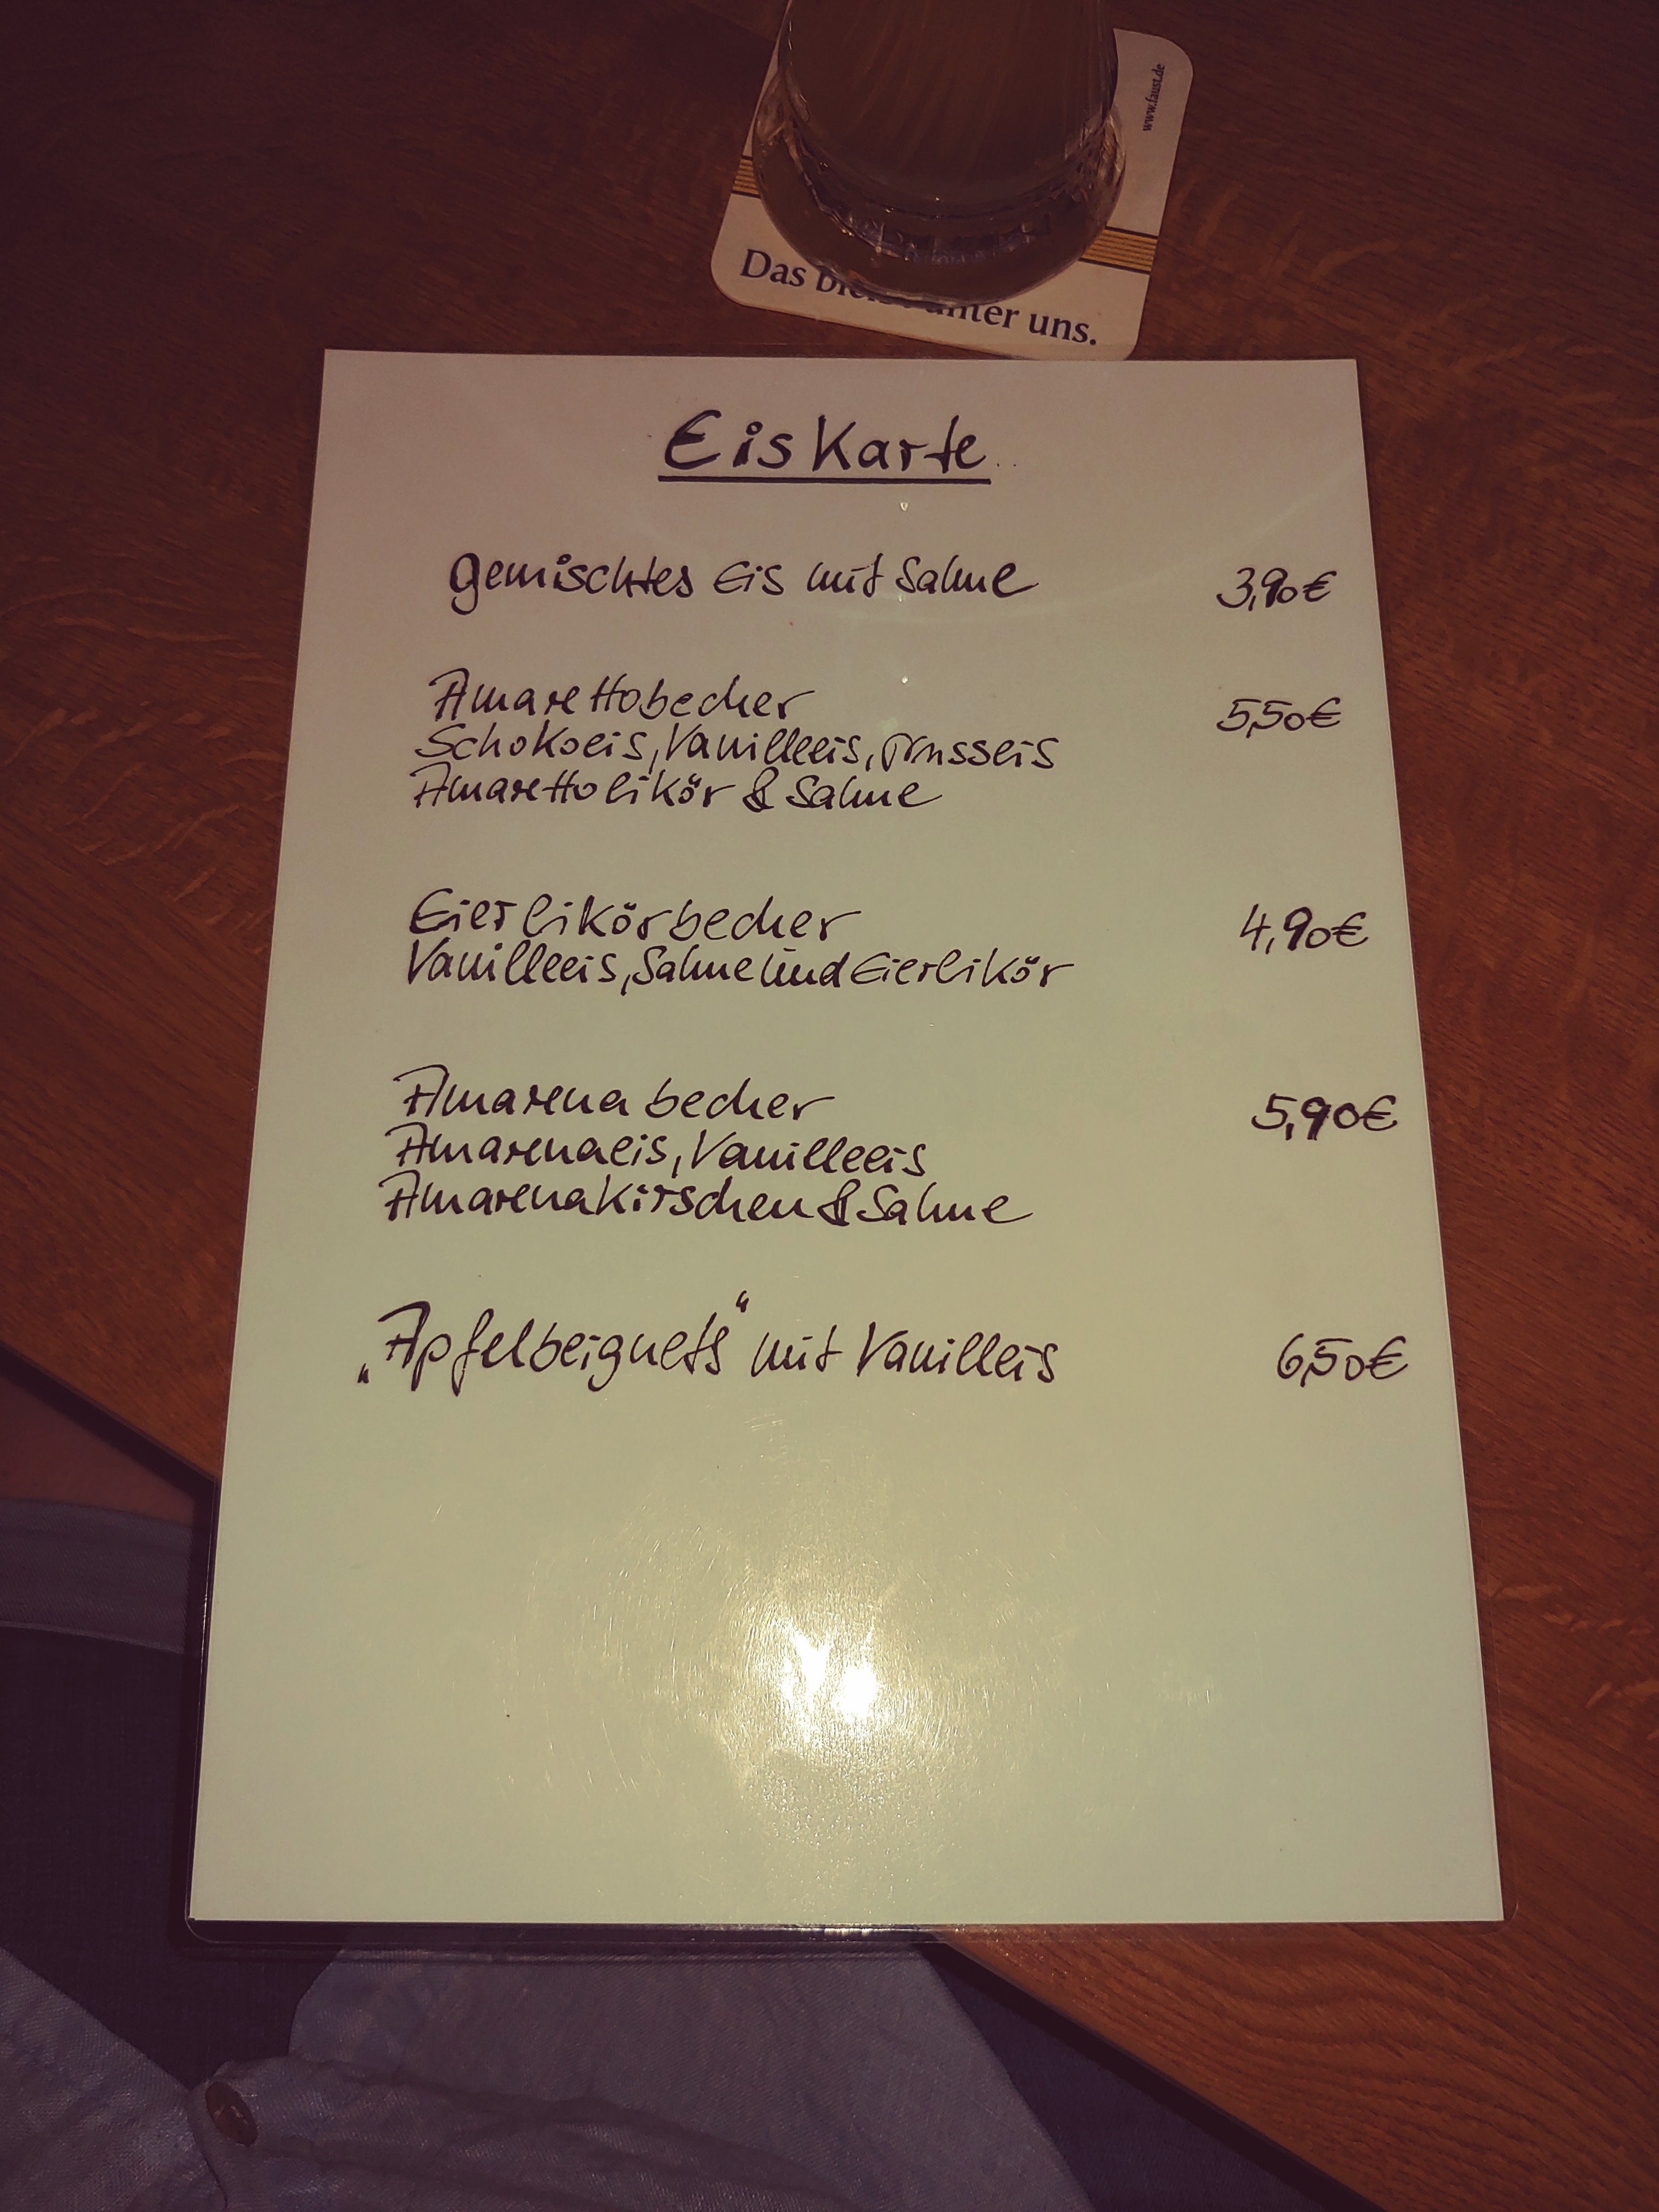 www.faust.de
Das bleibt unter uns.
Eiskarte
gemischtes Eis mit Sahne 3,90€
Amarettobecher 5,50€
Schokoeis, Vanilleeis, Nusseis
Amarettolikör & Sahne
Eierlikörbecher 4,90€
Vanilleeis, Sahne und Eierlikör
Amarenabecher 5,90€
Amarenaeis, Vanilleeis
Amarenakirschen & Sahne
„Apfelbeignets“ mit Vanilleis 6,50€